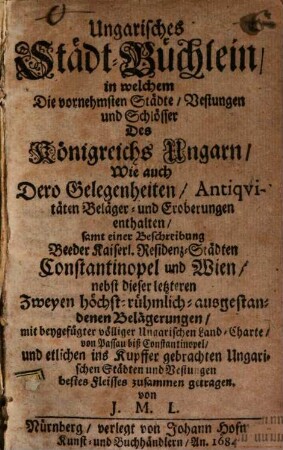 Ungarisches
Städt-Büchlein/
in welchem
Die vornehmsten Städte/ Vestungen
und Schlösser
Des
Königreichs Ungarn/
Wie auch
Dero Gelegenheiten/ Antiqvi-
täten Beläger- und Eroberungen
enthalten/
samt einer Beschreibung
Beeder Kaiserl. Residenz-Städten
Constantinopel und Wien/
nebst dieser letzteren
Zweyen höchst-rühmlich-ausgestan-
denen Belägerungen/
mit beygefügter völliger Ungarischen Land-Charte/
von Passau biß Constantinopel/
und etlichen ins Kupffer gebrachten Ungari-
schen Städten und Vestungen
bestes Fleisses zusammen getragen.
von
J. M. L.
Nürnberg/ verlegt von Johann Hofm
Kunst- und Buchhändlern/ An. 1684